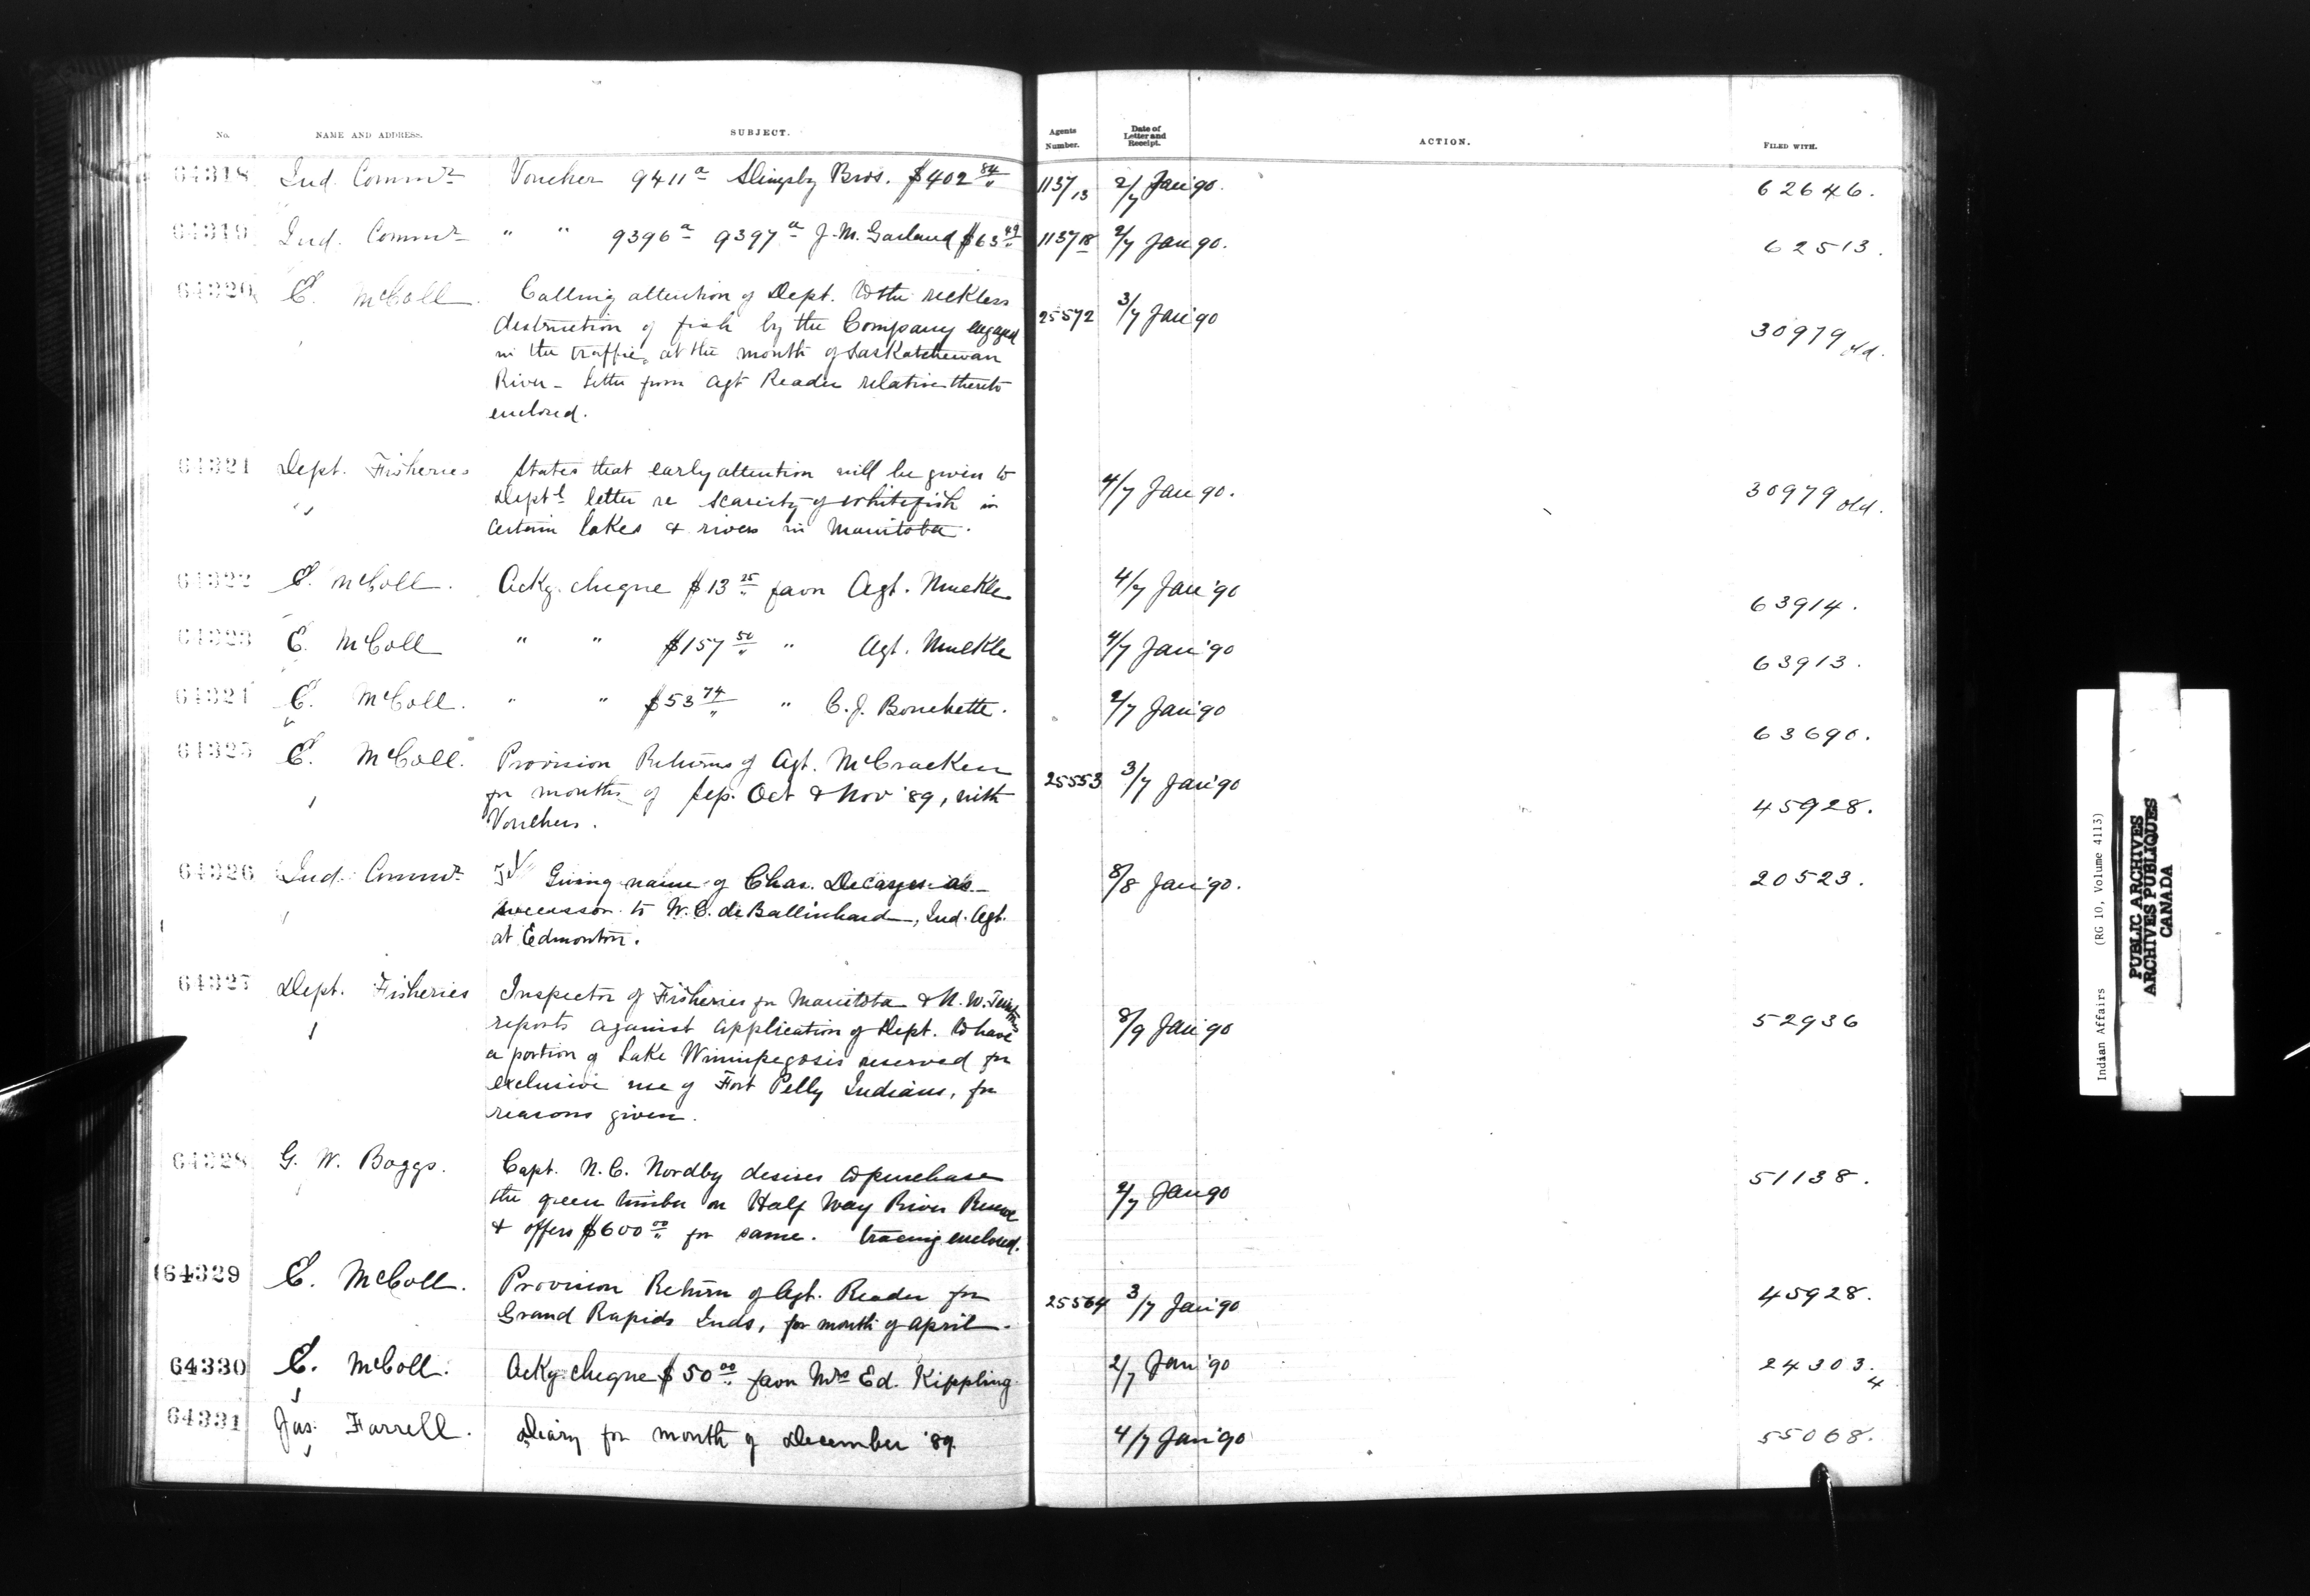 No. NAME AND ADDRESS. SUBJECT. Agents Number. Date of Letter and Receipt. ACTION. FILED WITH.
64318 Ind. Commr Voucher 9411a Slingsby Bros. $402 84/" 1137/13 2/7 Jan'90. 62646.
64319 Ind. Commr " " 9396a 9397a J.M. Garland $63 49/" 1137/18 2/7 Jan 90. 62513.
64320 E. McColl Calling attention of Dept. to the reckless
destruction of fish by the Company engaged 25572 3/7 Jan'90 30979 old.
in the traffic, at the mouth of Saskatchewan
River - letter from Agt Reader relative thereto
enclosed.
64321 Dept. Fisheries States that early attention will be given to
" Deptl letter re scarcity of whitefish in 4/7 Jan 90. 30979 old.
certain lakes & rivers in Manitoba.
64322 E. McColl. Ackg. cheque $13 25/" favor Agt. Muckle 4/7 Jan '90 63914.
64323 E. McColl " " $157 50/" " Agt. Muckle 4/7 Jan '90 63913.
64324 E. McColl. " " $53 74/" " C. J. Bouchette. 2/7 Jan'90 63690.
64325 E. McColl. Provision Returns of Agt. McCracken
for months of Sep. Oct & Nov '89, with 25553 3/7 Jan'90 45928.
Vouchers.
64326 Ind. Commr Giving name of Chas. Decazes as 8/8 Jan'90. 20523.
successor to W. C. de Ballinhard, Ind. Agt.
at Edmonton.
64327 Dept. Fisheries Inspector of Fisheries for Manitoba & N.W. Territories
reports against application of Dept. to have 8/9 Jan'90 52936
a portion of Lake Winnipegosis reserved for
exclusive use of Fort Pelly Indians, for
reasons given.
64328 G. W. Boggs. Capt. N. C. Nordby desires to purchase
the green timber on Half Way River Reserve 2/7 Jan 90 51138.
& offers $600 00/" for same. tracing enclosed.
64329 E. McColl. Provision Return of Agt. Reader for
Grand Rapids Inds, for month of April. 25564 3/7 Jan'90 45928.
64330 E. McColl. Ackg. cheque $50 00/" favor Mrs Ed. Kippling 2/7 Jan '90 24303.4
64331 Jas. Farrell. Diary for month of December '89. 4/7 Jan'90 55068.
Indian Affairs (RG 10, Volume 4113)
PUBLIC ARCHIVES
ARCHIVES PUBLIQUES
CANADA